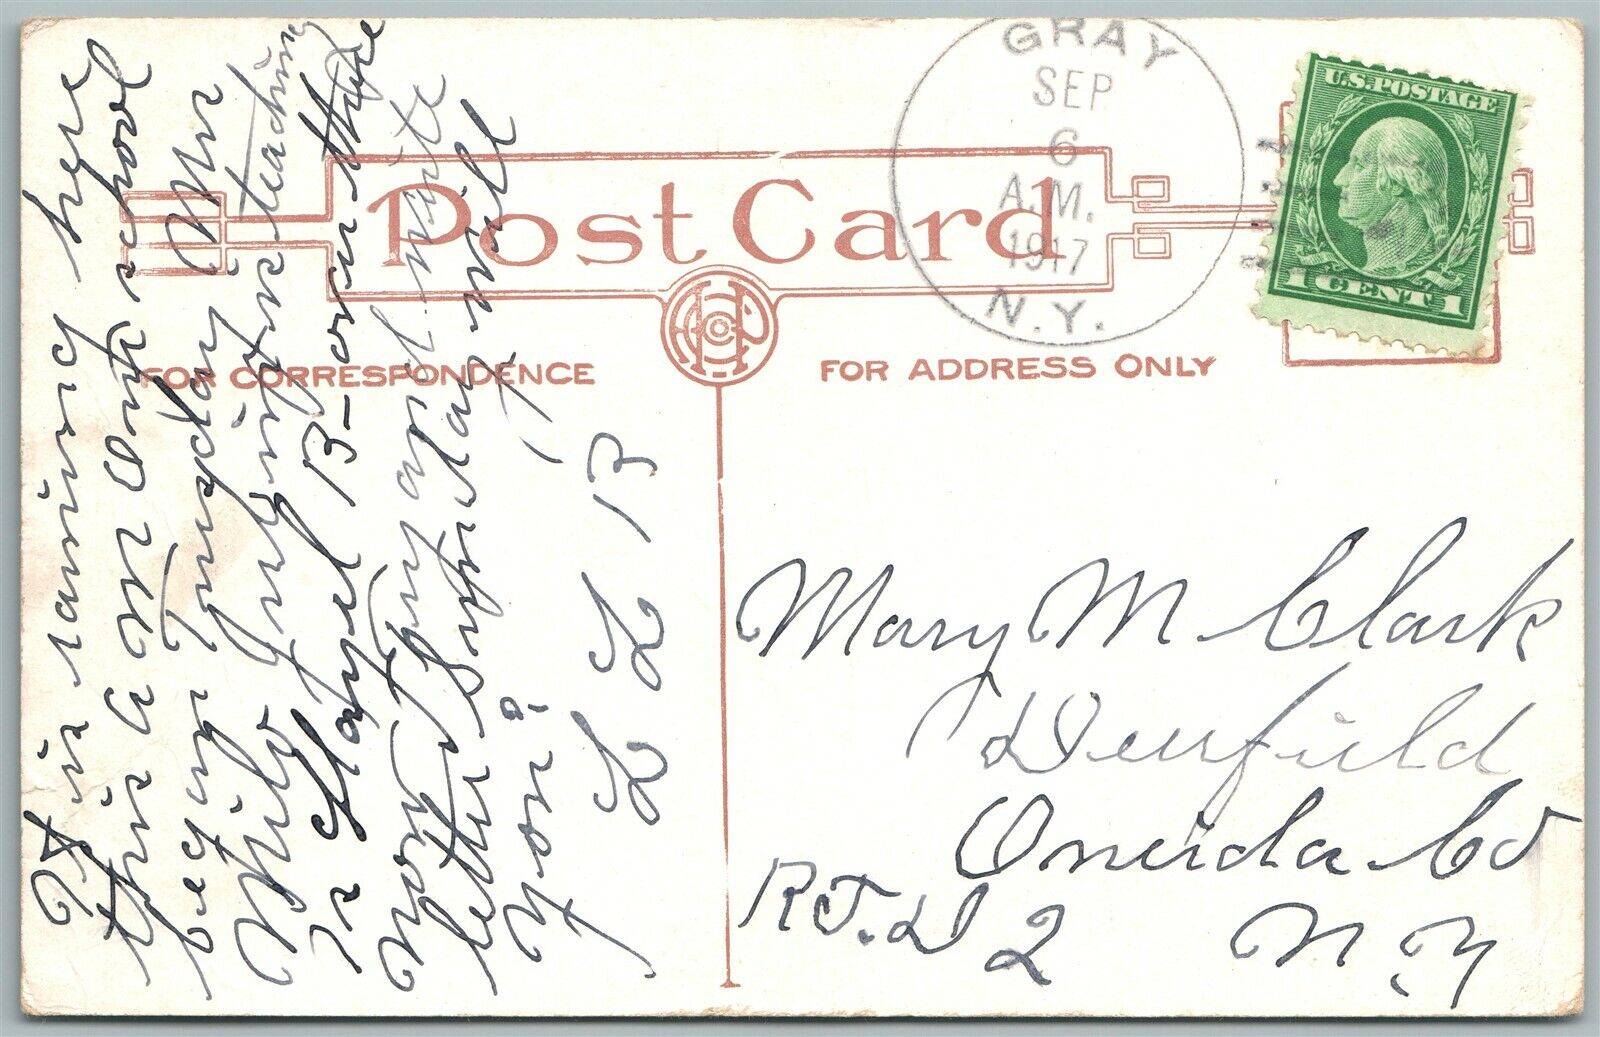 GRAY
SEP
6
A.M.
1917
N.Y.
U.S. POSTAGE
1 CENT 1
Post Card
FOR CORRESPONDENCE
FOR ADDRESS ONLY
It is raining here
this a m Our school
began Tuesday Mrs
Milo is teaching
Is Hazel B- over there
now They
letter
you?
L L B
Mary M Clark
Deerfield
Oneida Co
R.F.D 2 N.Y